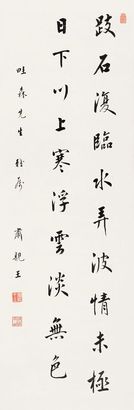 跂石復臨水弄波情未極
日下川上寒浮雲淡無色
旺森先生 雅屬
肅親王